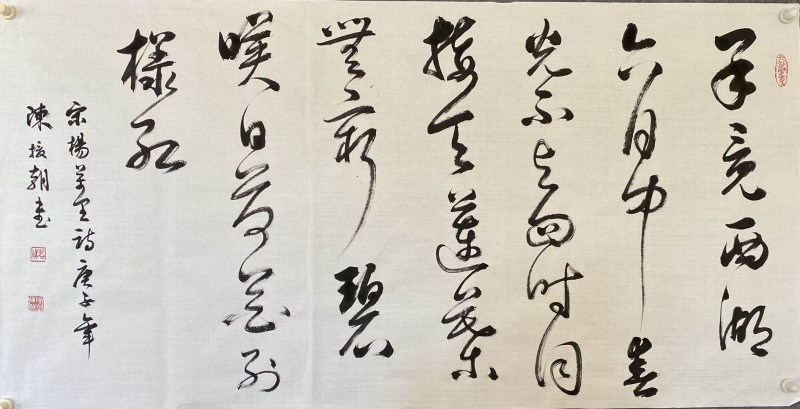 毕竟西湖
六月中春
光不与四时同
接天蓮葉
無窮碧
暎日荷花别
樣紅
宋楊萬里詩庚子年
陳援朝書